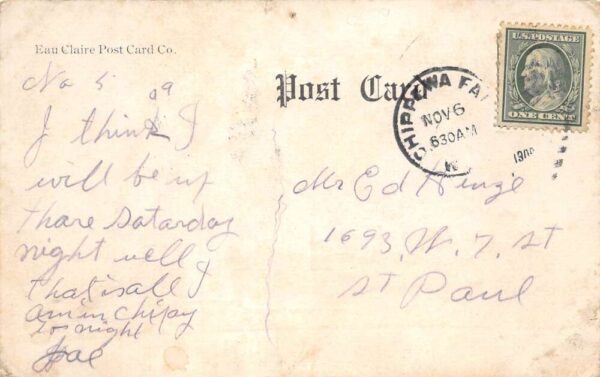 Eau Claire Post Card Co.
No 5 09
I think I
will be up
thare saturday
night well
that is all I
am in chipay
to night
Post Card
CHIPPEWA FA
NOV 6
630 AM
W
190
U.S. POSTAGE
ONE CENT
Mr Ed
1693, W. 7. St
St Paul